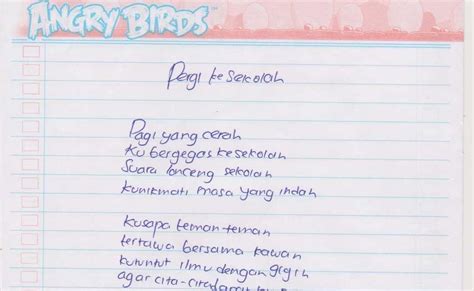 ANGRY BIRDS
Pergi ke sekolah
Pagi yang cerah
Ku bergegas kesekolah
Suara lonceng sekolah
Kunikmati masa yang indah
Kusapa teman-teman
tertawa bersama kawan
kutuntut ilmu dengan gigih
agar cita-cita